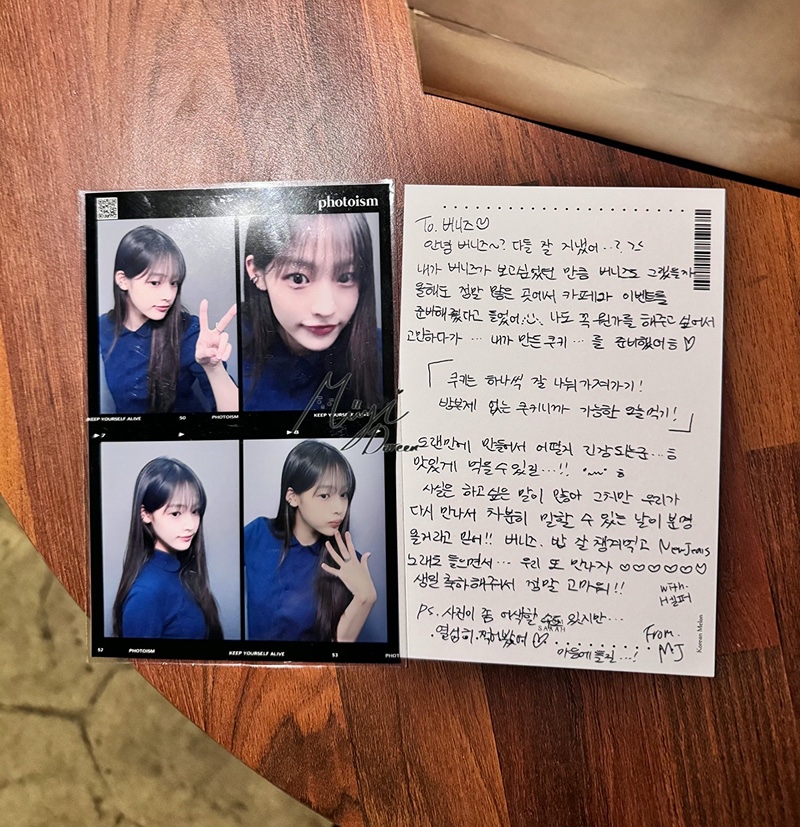 photoism
KEEP YOURSELF ALIVE
50
PHOTOISM
KEEP YOURSELF ALIVE
7
8
52
PHOTOISM
KEEP YOURSELF ALIVE
53
PHOT
To. 버니즈♡
안녕 버니즈~? 다들 잘 지냈어..?
내가 버니즈가 보고싶었던 만큼 버니즈도 그랬을까
올해도 정말 많은 곳에서 카페와 이벤트를
준비해줬다고 들었어 나도 꼭 뭔가를 해주고 싶어서
고민하다가 ... 내가 만든 쿠키 ... 를 준비했어ㅎ ♡
「쿠키는 하나씩 잘 나눠가져가기!
방부제 없는 쿠키니까 가능한 오늘먹기!」
오랜만에 만들어서 어떨지 긴장되는군...ㅎ
맛있게 먹을 수 있길...!! ㅎ
사실은 하고싶은 말이 많아 그치만 우리가
다시 만나서 차분히 말할 수 있는 날이 분명
올거라고 믿어!! 버니즈, 밥 잘 챙겨먹고 NewJeans
노래도 들으면서... 우리 또 만나자 ♡♡♡♡♡♡♡
생일 축하해줘서 정말 고마워!!
with.
PS. 사진이 좀 어색할 수도 있지만...
열심히 찍어봤어 ♡
마음에 들길...!
From.
MJ
Korean Melan